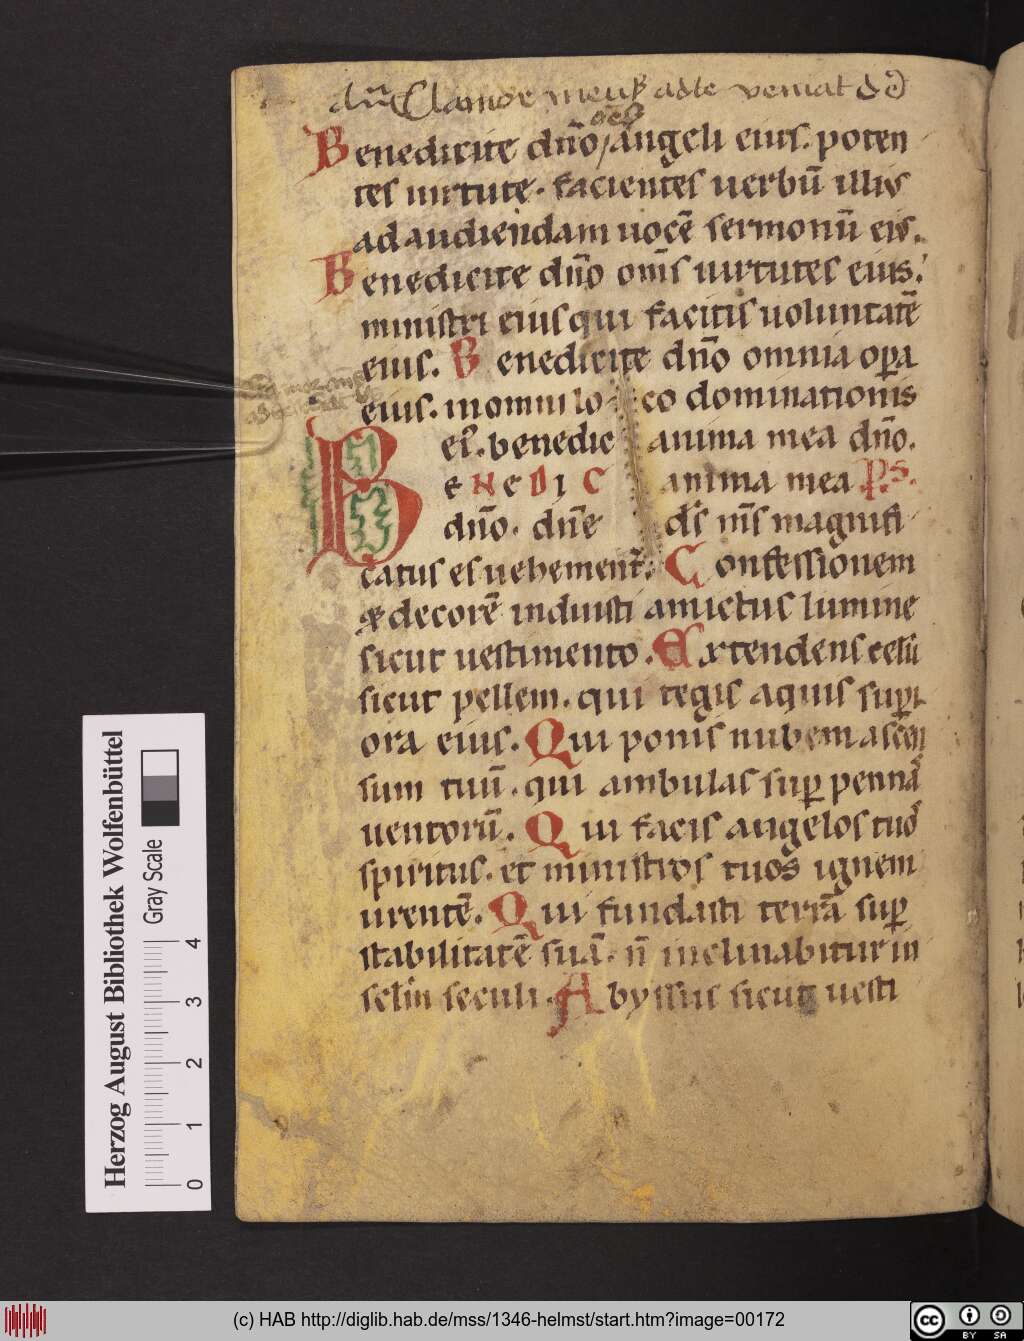 Clamor meus ad te veniat
oēs
Benedicite dn̄o angeli eius. poten
tes uirtute. facientes uerbū illis
ad audiendam uocē sermonū eis.
Benedicite dn̄o om̄s uirtutes eius.
ministri eius qui facitis uoluntatē
eius. Benedicite dn̄o omnia opa
eius. in omni lo co dominationis
ei. benedic anima mea dn̄o.
BENEDIC anima mea Ps.
dn̄o. dn̄e ds̄ m̄s magnifi
catus es uehement. Confessionem
& decorē induisti amictus lumine
sicut uestimento. Extendens celū
sicut pellem. qui tegis aquis supi
ora eius. Qui ponis nubem ascen
sum tuū. qui ambulas sup pennas
uentorū. Qui facis angelos tuos
spiritus. et ministros tuos ignem
urentē. Qui fundasti terrā sup
stabilitatē suā. n̄ inclinabitur in
sclm̄ seculi. Abyssus sicut uesti
Herzog August Bibliothek Wolfenbüttel
Gray Scale
0 1 2 3 4
(c) HAB http://diglib.hab.de/mss/1346-helmst/start.htm?image=00172
cc BY SA